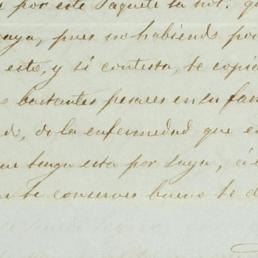 por este Paquete la not. qu
suya, pues no habiendo pod
esto, y si contesta, te copia
bastantes pesares en su fam
d, de la enfermedad que e
que tenga esta por suya, a
te conserves bueno te d